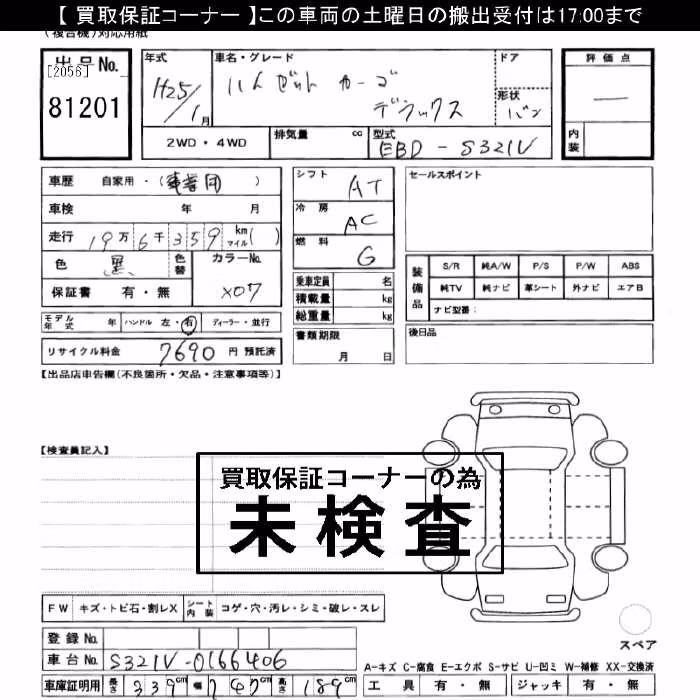 【 買取保証コーナー 】この車両の土曜日の搬出受付は17:00まで
(複合機)対応用紙
出品No.
[2056]
81201
年式
H25/1月
車名・グレード
ハイゼット カーゴ
デラックス
ドア
形状
バン
評価点
内装
2WD・4WD
排気量 cc
型式
EBD-S321V
車歴 自家用・( )
車検 年 月
走行 19万6千359 km マイル( )
色 黒 色替
カラーNo.
X07
保証書 有・無
モデル年式 年 ハンドル 左・右 ディーラー・並行
リサイクル料金 7690 円 預託済
シフト AT
冷房 AC
燃料 G
乗車定員 名
積載量 kg
総重量 kg
書類期限
月 日
セールスポイント
装備品
S/R 純A/W P/S P/W ABS
純TV 純ナビ 革シート 外ナビ エアB
ナビ型番:
後日品
【出品店申告欄(不良箇所・欠品・注意事項等)】
【検査員記入】
買取保証コーナーの為
未検査
FW キズ・トビ石・割レX シート内装 コゲ・穴・汚レ・シミ・破レ・スレ
登録No.
車台No. S321V-0166406
車庫証明用 長さ 339cm 幅 147cm 高さ 189cm
スペア
A-キズ C-腐食 E-エクボ S-サビ U-凹ミ W-補修 XX-交換済
工具 有・無 ジャッキ 有・無